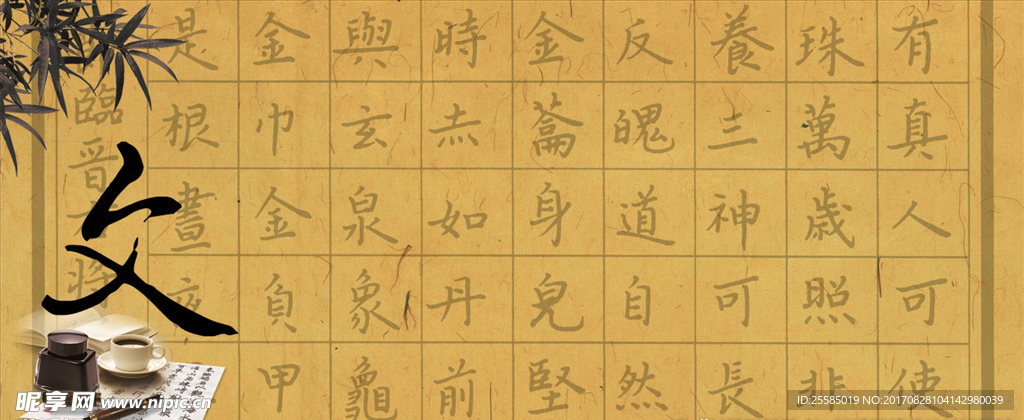 有真人可使
珠萬歲照非
養三神可長
反魄道自然
金身皃堅
時赤如丹前
與玄泉象龜
金巾金負甲
是根晝夜
臨晉將
文
昵享网 www.nipic.cn
ID:25585019 NO:20170828104142980039